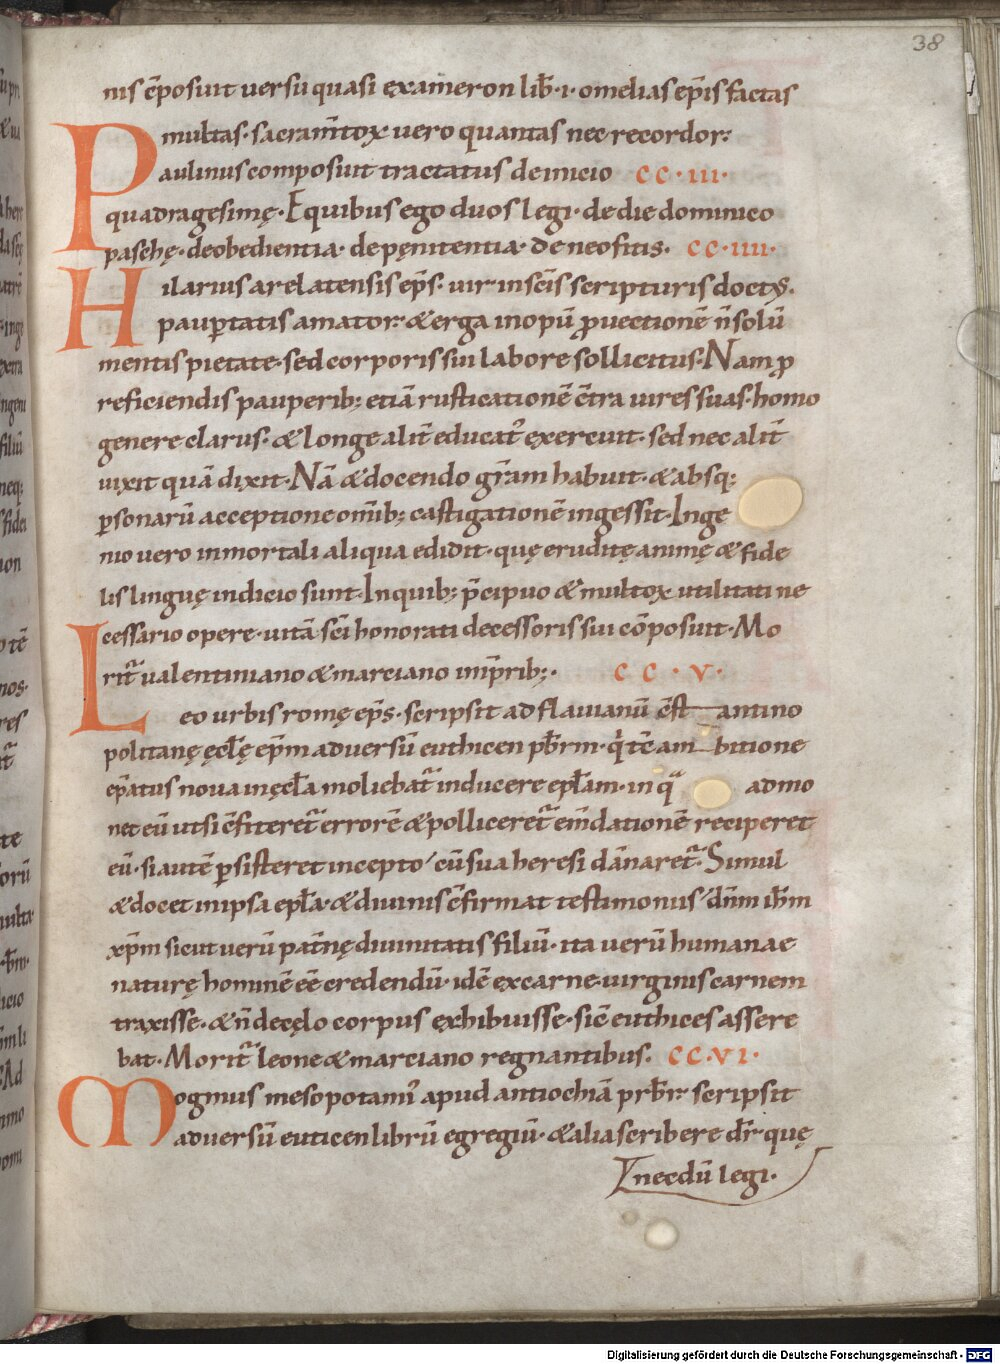 38
nis ēposuit uersu quasi exameron lib̄·i· omelias ep̄is factas
multas· sacram̄toꝝ uero quantas nec recordor:
Paulinus composuit tractatus de inicio CC·III·
quadragesimę· Equibus ego duos legi· de die dominico
paschę· de obedientia· de pęnitentia· de neofitis· CC·IIII·
Hilarius arelatensis ep̄s· uir in sc̄is scripturis doctꝰ·
paup̄tatis amator· & erga inopū ꝓuectionē n̄ solū
mentis pietate· sed corporis sui labore sollicitus· Nam ꝓ
reficiendis pauperib; etiā rusticationē c̄tra uires suas· homo
genere clarus· & longe alit̄ educat᷑ exercuit· sed nec alit̄
uixit quā dixit· Nā & docendo gr̄am habuit· & absq;
ꝑsonarū acceptione om̄ib; castigationē ingessit· Inge
nio uero inmortali aliqua edidit· quę eruditę animę & fide
lis linguę indicio sunt· Inquib; p̄cipuo & multoꝝ utilitati ne
cessario opere· uitā sc̄i honorati decessoris sui cōposuit· Mo
rit᷑ ualentiniano & marciano imp̄rib;· CC·V·
Leo urbis romę ep̄s· scripsit ad flauianū c̄st antino
politanę ęcl̄ę ep̄m aduersū euthicen pb̄rm· q̇ tc̄ am bitione
ep̄atus noua in ęcl̄a moliebat᷑ inducere epl̄am· in qͣ admo
net eū ut si c̄fiteret᷑ errorē & polliceret᷑ em̄dationē reciperet
eū· si autē ꝑsisteret incepto cū sua heresi dānaret᷑· Simul
& docet in ipsa epl̄a· & diuinis c̄firmat testimoniis dn̄m ih̄m
xp̄m sicut uerū pat̄nę diuinitatis filiū· ita uerū humanae
naturę hominē eē credendū· idē ex carne uirginis carnem
traxisse· & n̄ de cęlo corpus exhibuisse· sic̄ euthices assere
bat· Morit᷑ leone & marciano regnantibus· CC·VI·
Mogmus mesopotami᷑ apud antiochiā prb̄r· scripsit
aduersū euticen librū egregiū· & alia scribere dr̄· quę
necdū legi·
Digitalisierung gefördert durch die Deutsche Forschungsgemeinschaft - DFG